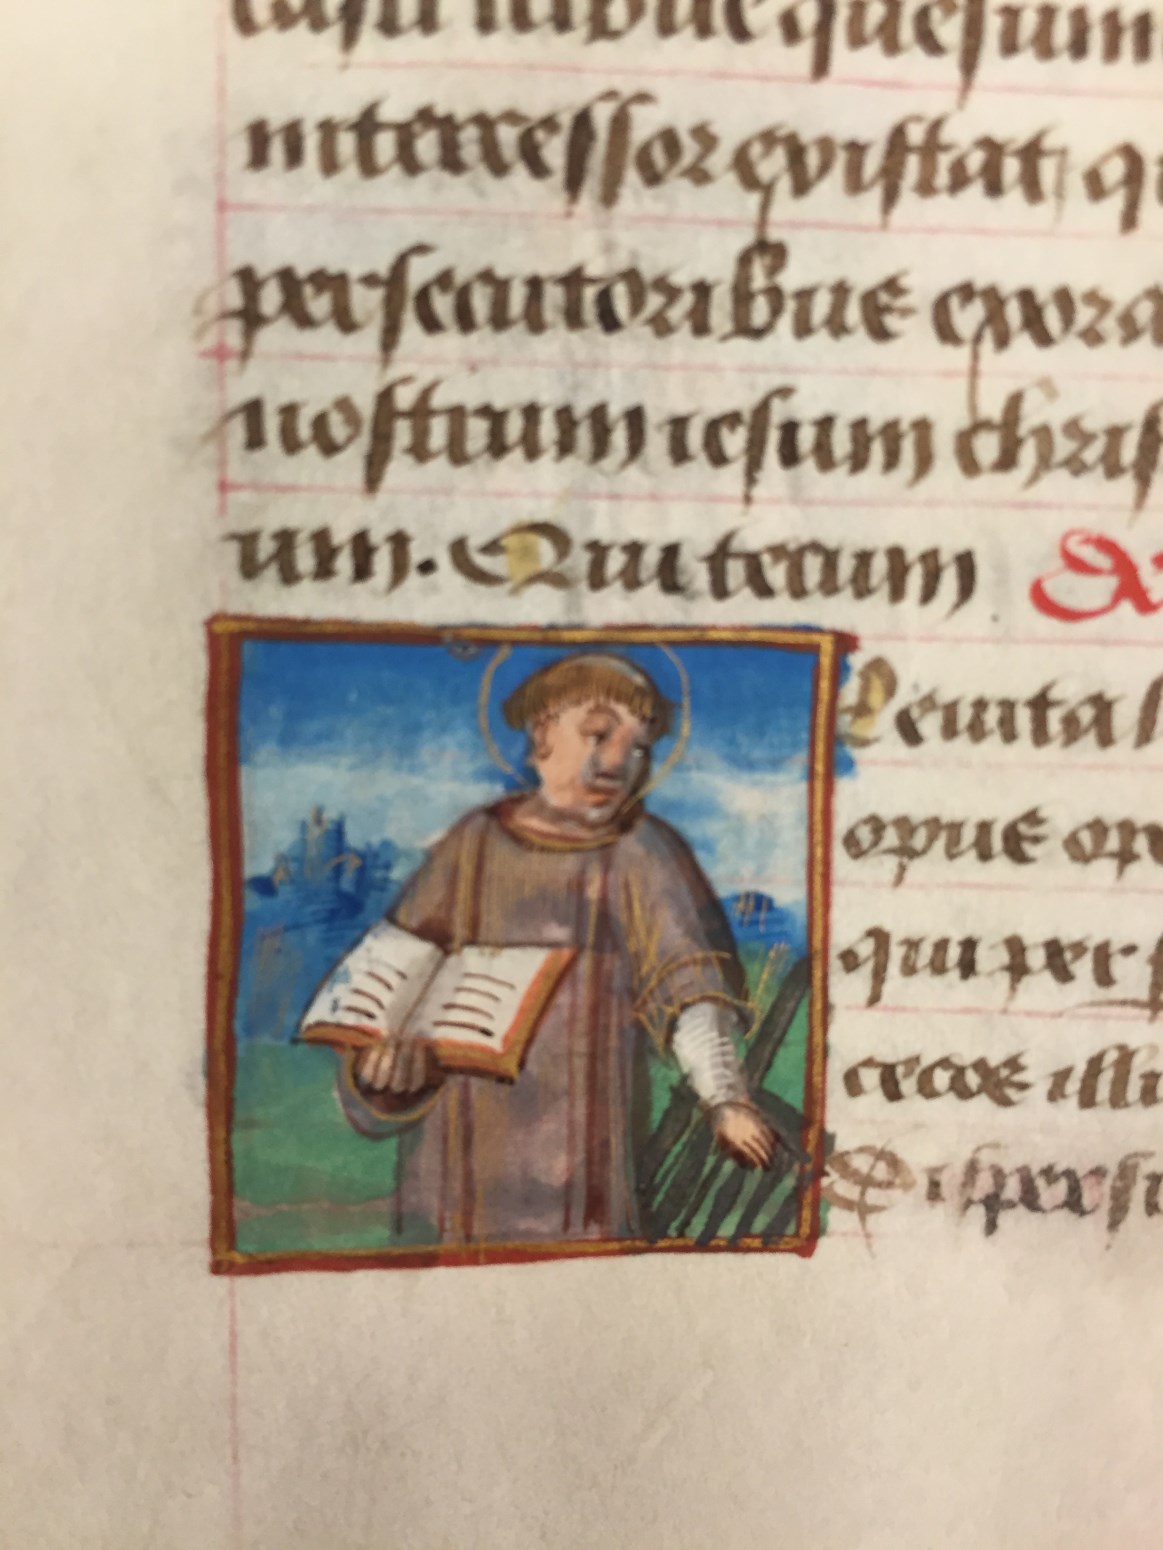 quesum
intercessor existat q
persecutoribus exora
nostrum iesum chris
um. Qui tecum
Leuita
opus ope
qui per s
cecos illu
Dispersi